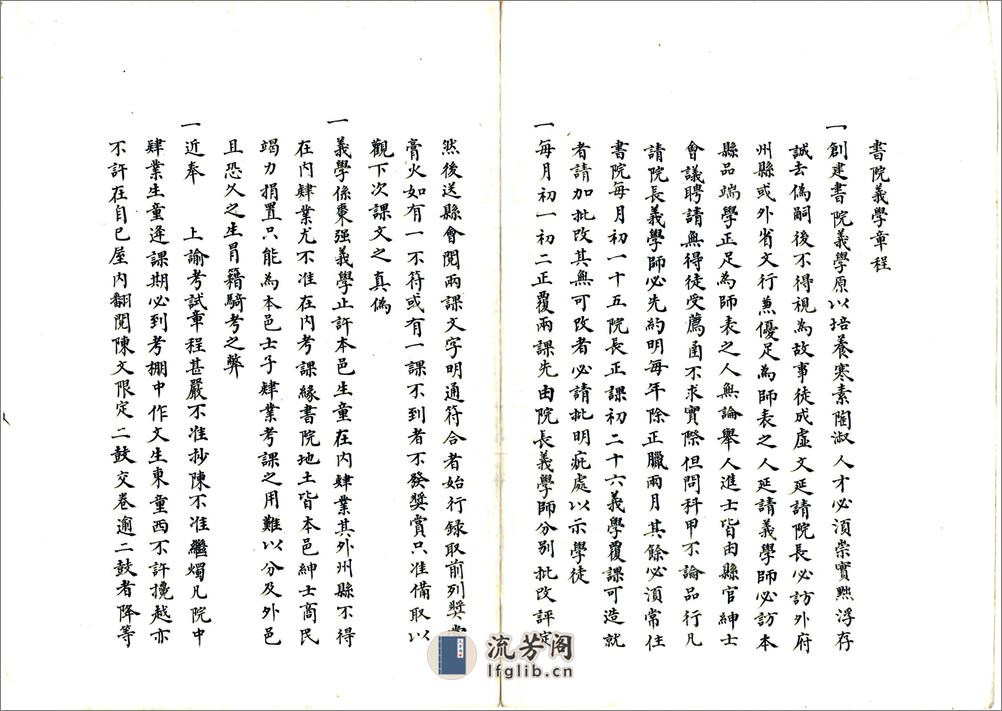 書院義學章程
一創建書院義學原以培養寒素陶淑人才必須崇實黜浮存
誠去偽嗣後不得視為故事徒成虛文延請院長必訪外府
州縣或外省文行兼優足為師表之人延請義學師必訪本
縣品端學正足為師表之人無論舉人進士皆由縣官紳士
會議聘請無得徒受薦函不求實際但問科甲不論品行凡
請院長義學師必先約明每年除正臘兩月其餘必須常住
書院每月初一十五院長正課初二十六義學覆課可造就
者請加批改其無可改者必請批明疵處以示學徒
一每月初一初二正覆兩課先由院長義學師分別批改評定
然後送縣會閱兩課文字明通符合者始行録取前列獎賞
膏火如有一不符或有一課不到者不發獎賞只准備取以
觀下次課文之真偽
一義學係棗强義學止許本邑生童在內肄業其外州縣不得
在內肄業尤不准在內考課緣書院地土皆本邑紳士商民
竭力捐置只能為本邑士子肄業考課之用難以分及外邑
且恐久之生冒籍騎考之弊
一近奉　上諭考試章程甚嚴不准抄陳不准繼燭凡院中
肄業生童逢課期必到考棚中作文生東童西不許攙越亦
不許在自已屋內翻閱陳文限定二鼓交卷逾二鼓者降等
流芳阁
lfglib.cn